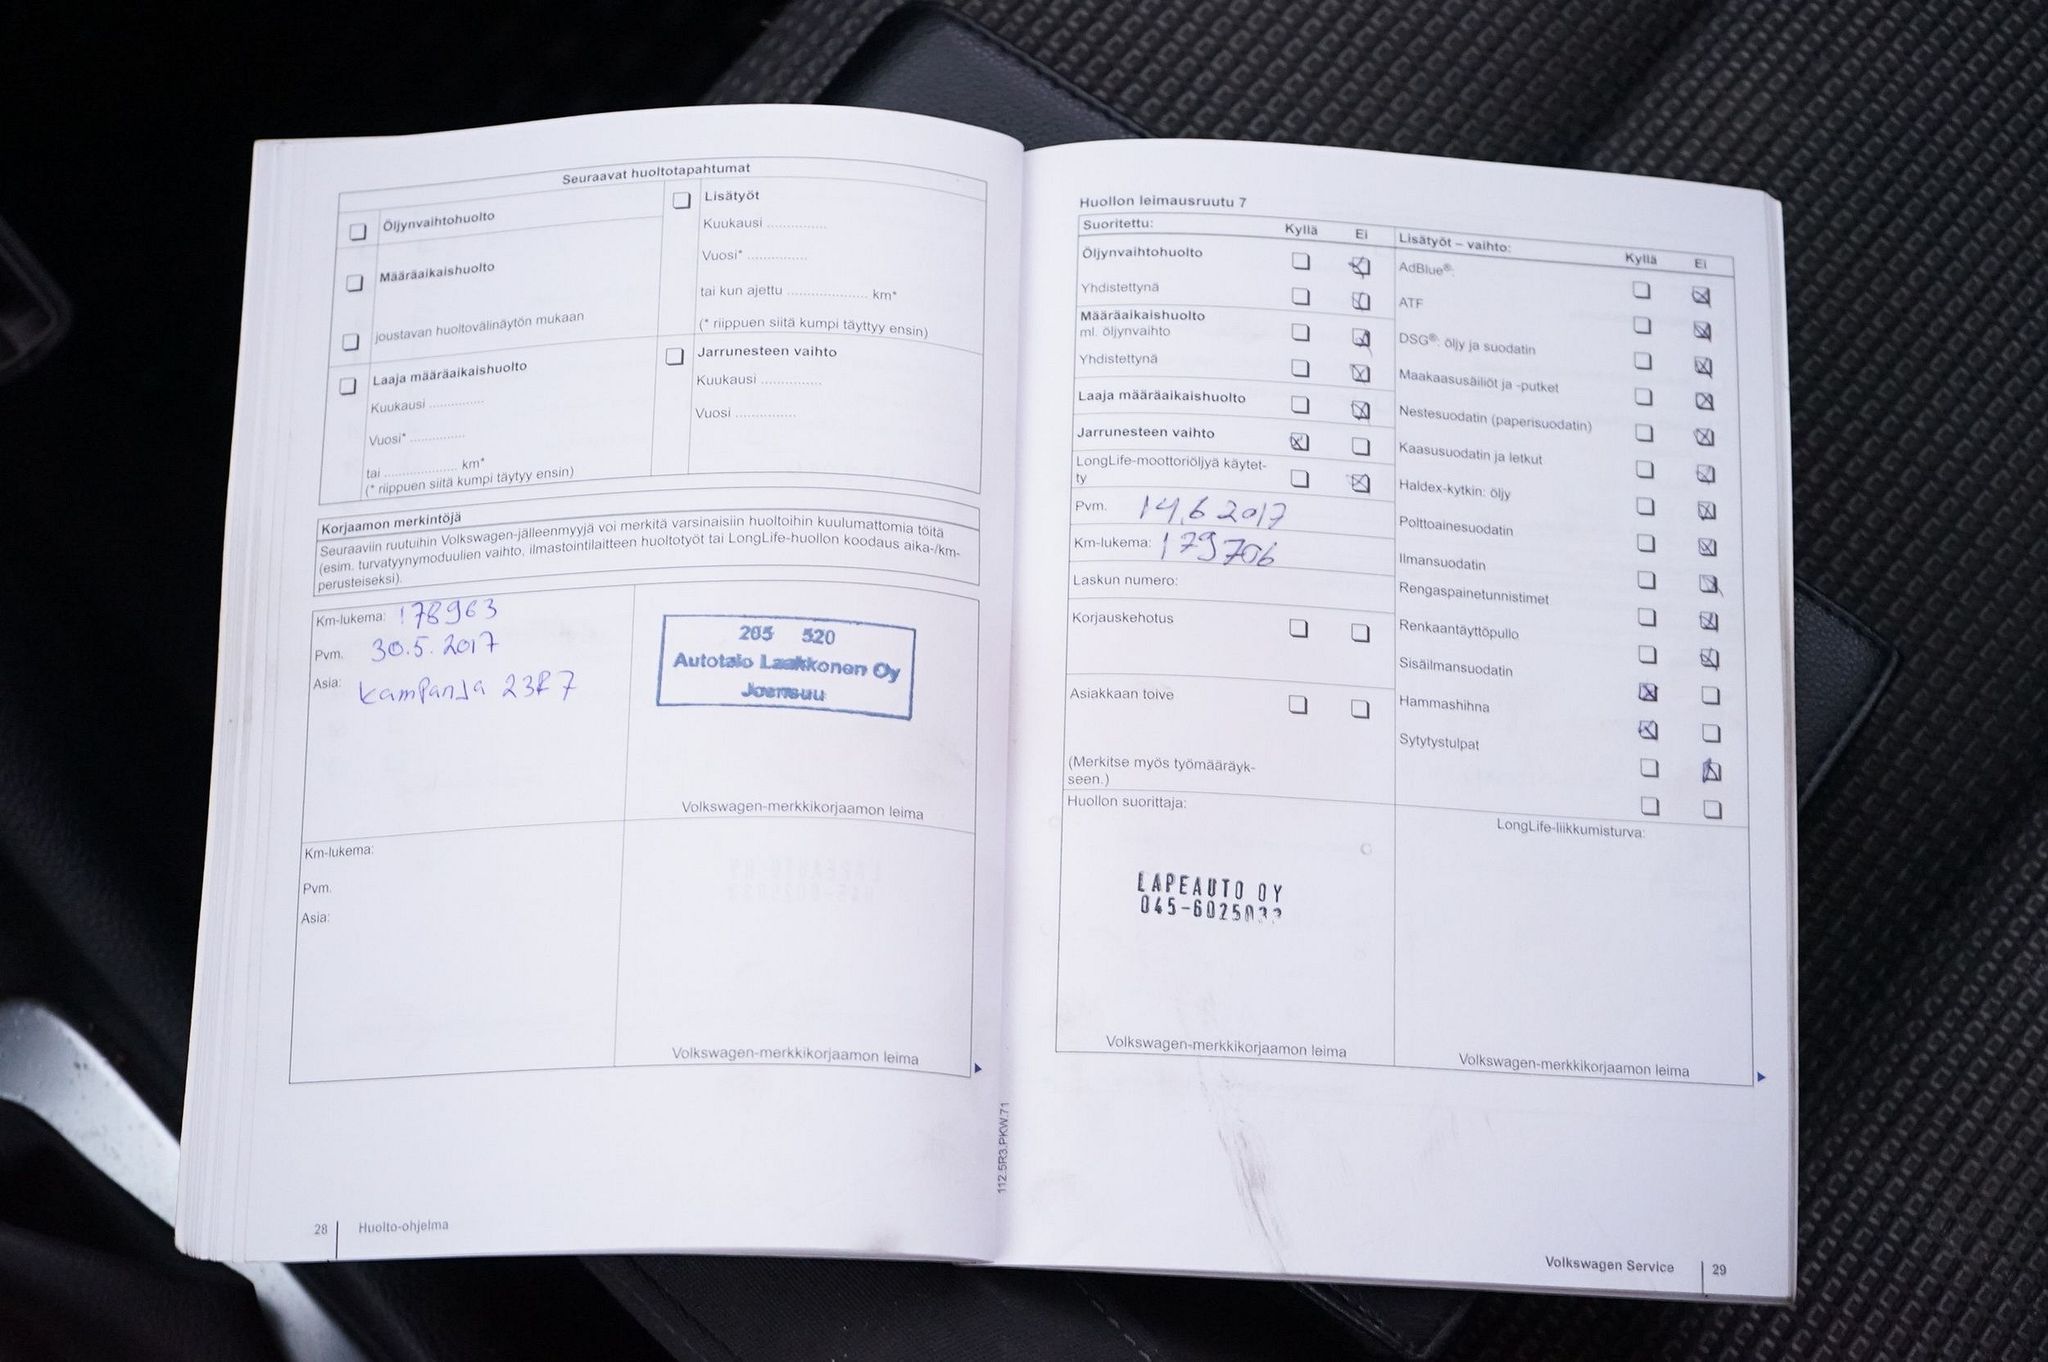 Seuraavat huoltotapahtumat
Öljynvaihtohuolto
Määräaikaishuolto
joustavan huoltovälinäytön mukaan
Laaja määräaikaishuolto
Kuukausi ...............
Vuosi* ...............
tai .................... km*
(* riippuen siitä kumpi täytyy ensin)
Lisätyöt
Kuukausi ...............
Vuosi* ...............
tai kun ajettu .................... km*
(* riippuen siitä kumpi täyttyy ensin)
Jarrunesteen vaihto
Kuukausi ...............
Vuosi ...............
Korjaamon merkintöjä
Seuraaviin ruutuihin Volkswagen-jälleenmyyjä voi merkitä varsinaisiin huoltoihin kuulumattomia töitä
(esim. turvatyynymoduulien vaihto, ilmastointilaitteen huoltotyöt tai LongLife-huollon koodaus aika-/km-
perusteiseksi).
Km-lukema: 178963
Pvm. 30.5.2017
Asia: kampanja 23R7
205 520
Autotalo Laakkonen Oy
Joensuu
Volkswagen-merkkikorjaamon leima
Km-lukema:
Pvm.
Asia:
Volkswagen-merkkikorjaamon leima
28 Huolto-ohjelma
112.5R3.PKW.71
Huollon leimausruutu 7
Suoritettu: Kyllä Ei
Öljynvaihtohuolto
Yhdistettynä
Määräaikaishuolto
ml. öljynvaihto
Yhdistettynä
Laaja määräaikaishuolto
Jarrunesteen vaihto
LongLife-moottoriöljyä käytet-
ty
Pvm. 14.6 2017
Km-lukema: 179706
Laskun numero:
Korjauskehotus
Asiakkaan toive
(Merkitse myös työmääräyk-
seen.)
Huollon suorittaja:
LAPEAUTO OY
Volkswagen-merkkikorjaamon leima
Lisätyöt – vaihto: Kyllä Ei
AdBlue®:
ATF
DSG®: öljy ja suodatin
Maakaasusäiliöt ja -putket
Nestesuodatin (paperisuodatin)
Kaasusuodatin ja letkut
Haldex-kytkin: öljy
Polttoainesuodatin
Ilmansuodatin
Rengaspainetunnistimet
Renkaantäyttöpullo
Sisäilmansuodatin
Hammashihna
Sytytystulpat
LongLife-liikkumisturva:
Volkswagen-merkkikorjaamon leima
Volkswagen Service 29